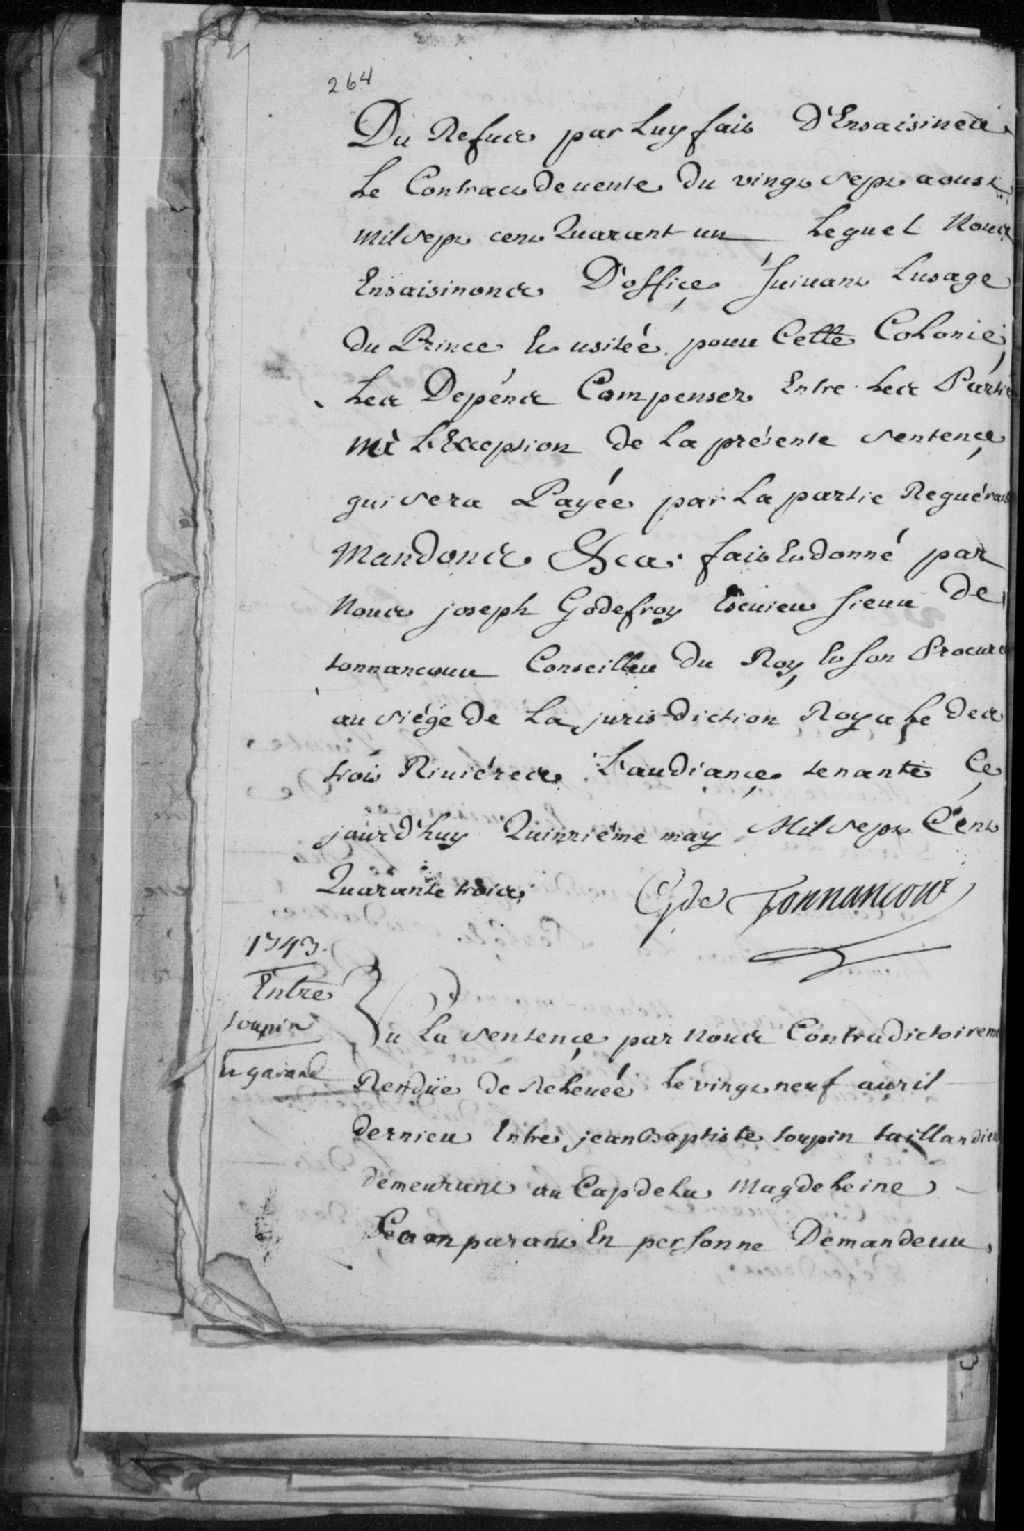 264
Du Refus par Luy fait D'Ensaisinée
Le Contract de uente Du vingt sept aoust
Mil sept cent Quarant un Lequel Nous
Ensaisinons D'office, suiuant Lusage
du Prince Et usitée pour Cette Colonie
Les Depéns Compensez Entre Les Parties
mè L'Exception de La présente sentençe
qui sera Payée par La partie Requérante
Mandons &ca. fait Et donné par
Nous joseph Godefroy Escuier sieur De
tonnancour Conseiller du Roy, Et son Procureur
au siége de La jurisdiction Royalle des
trois Riuiéres L'audiançe, tenante Ce
jourd'huy Quinziéme may Mil sept Cent
Quarante trois,
G de Tonnancour
1743.
Entre
toupin
Et garand
Vu La sentençe par nous Contradictoirement
Renduë de Releuéé Le vingt neuf auril
dernier Entre jean Baptiste toupin taillandier
demeurant au Cap de La Magdeleine
Comparant En personne Demandeur,